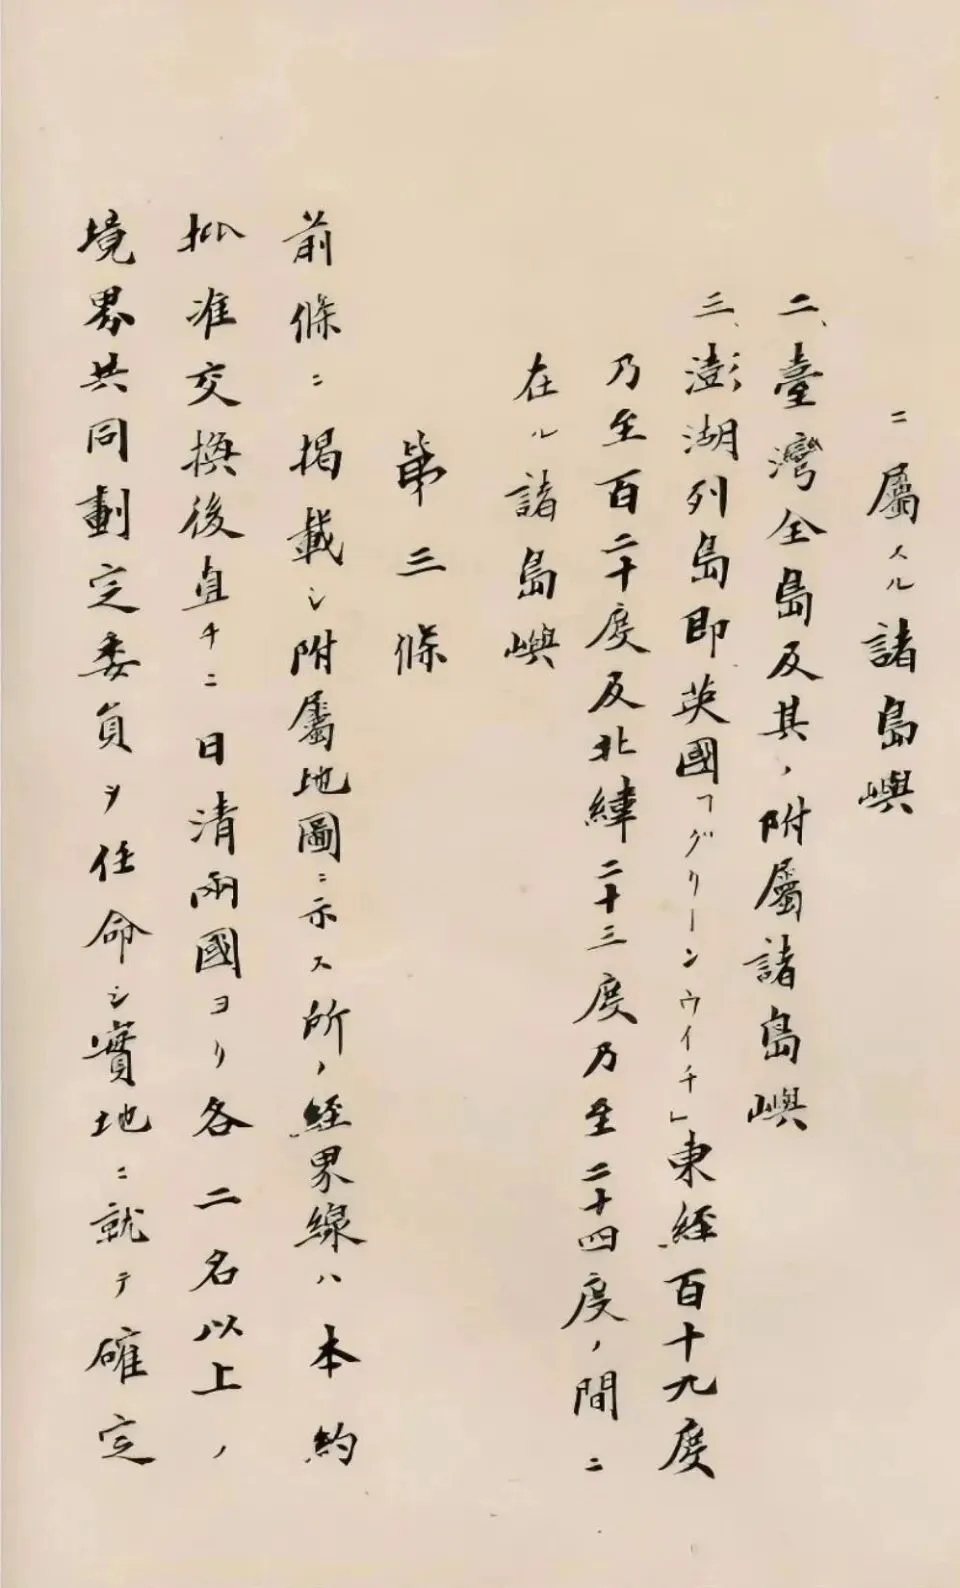 ニ屬スル諸島嶼
二、臺灣全島及其ノ附屬諸島嶼
三、澎湖列島即英國「グリーンウイチ」東経百十九度
乃至百二十度及北緯二十三度乃至二十四度ノ間ニ
在ル諸島嶼
第三條
前條ニ掲載シ附屬地圖ニ示ス所ノ経界線ハ本約
批准交換後直チニ日清両國ヨリ各二名以上ノ
境界共同劃定委員ヲ任命シ實地ニ就テ確定